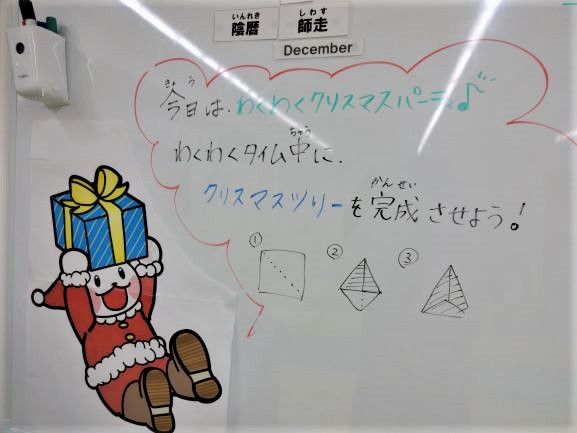 いんれき
陰暦
しわす
師走
December
きょう
今日は、わくわくクリスマスパーティ♪
ちゅう
わくわくタイム中に、
かんせい
クリスマスツリーを完成させよう!
① ② ③